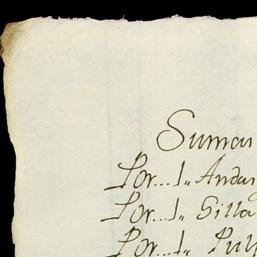 Sumar
Por...1,, Andar
Por...1,, Silla
Por...1,, Pulp